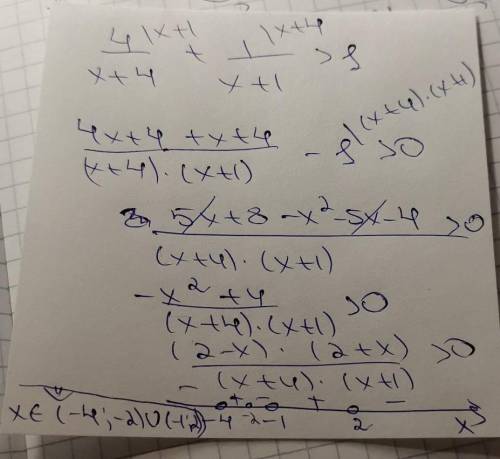 4 |x+1 / x+4 + 1 |x+4 / x+1 > 1
4x+4+x+4 / (x+4)·(x+1) - 1 |(x+4)·(x+1) > 0
5x+8-x²-5x-4 / (x+4)·(x+1) > 0
-x²+4 / (x+4)·(x+1) > 0
(2-x)·(2+x) / (x+4)·(x+1) > 0
- + - + -
-4 -2 -1 2 x
x∈(-4;-2)∪(-1;2)